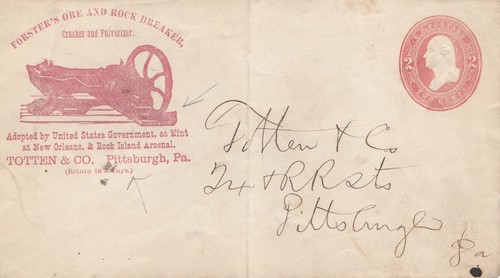 FORSTER'S ORE AND ROCK BREAKER,
Crusher and Pulverizer.
Adopted by United States Government, at Mint
at New Orleans, & Rock Island Arsenal.
TOTTEN & CO. Pittsburgh, Pa.
(Return in Days.)
U.S. POSTAGE
2 2
TWO CENTS
Totten & Co
24 & RR Sts
Pittsburgh
Pa